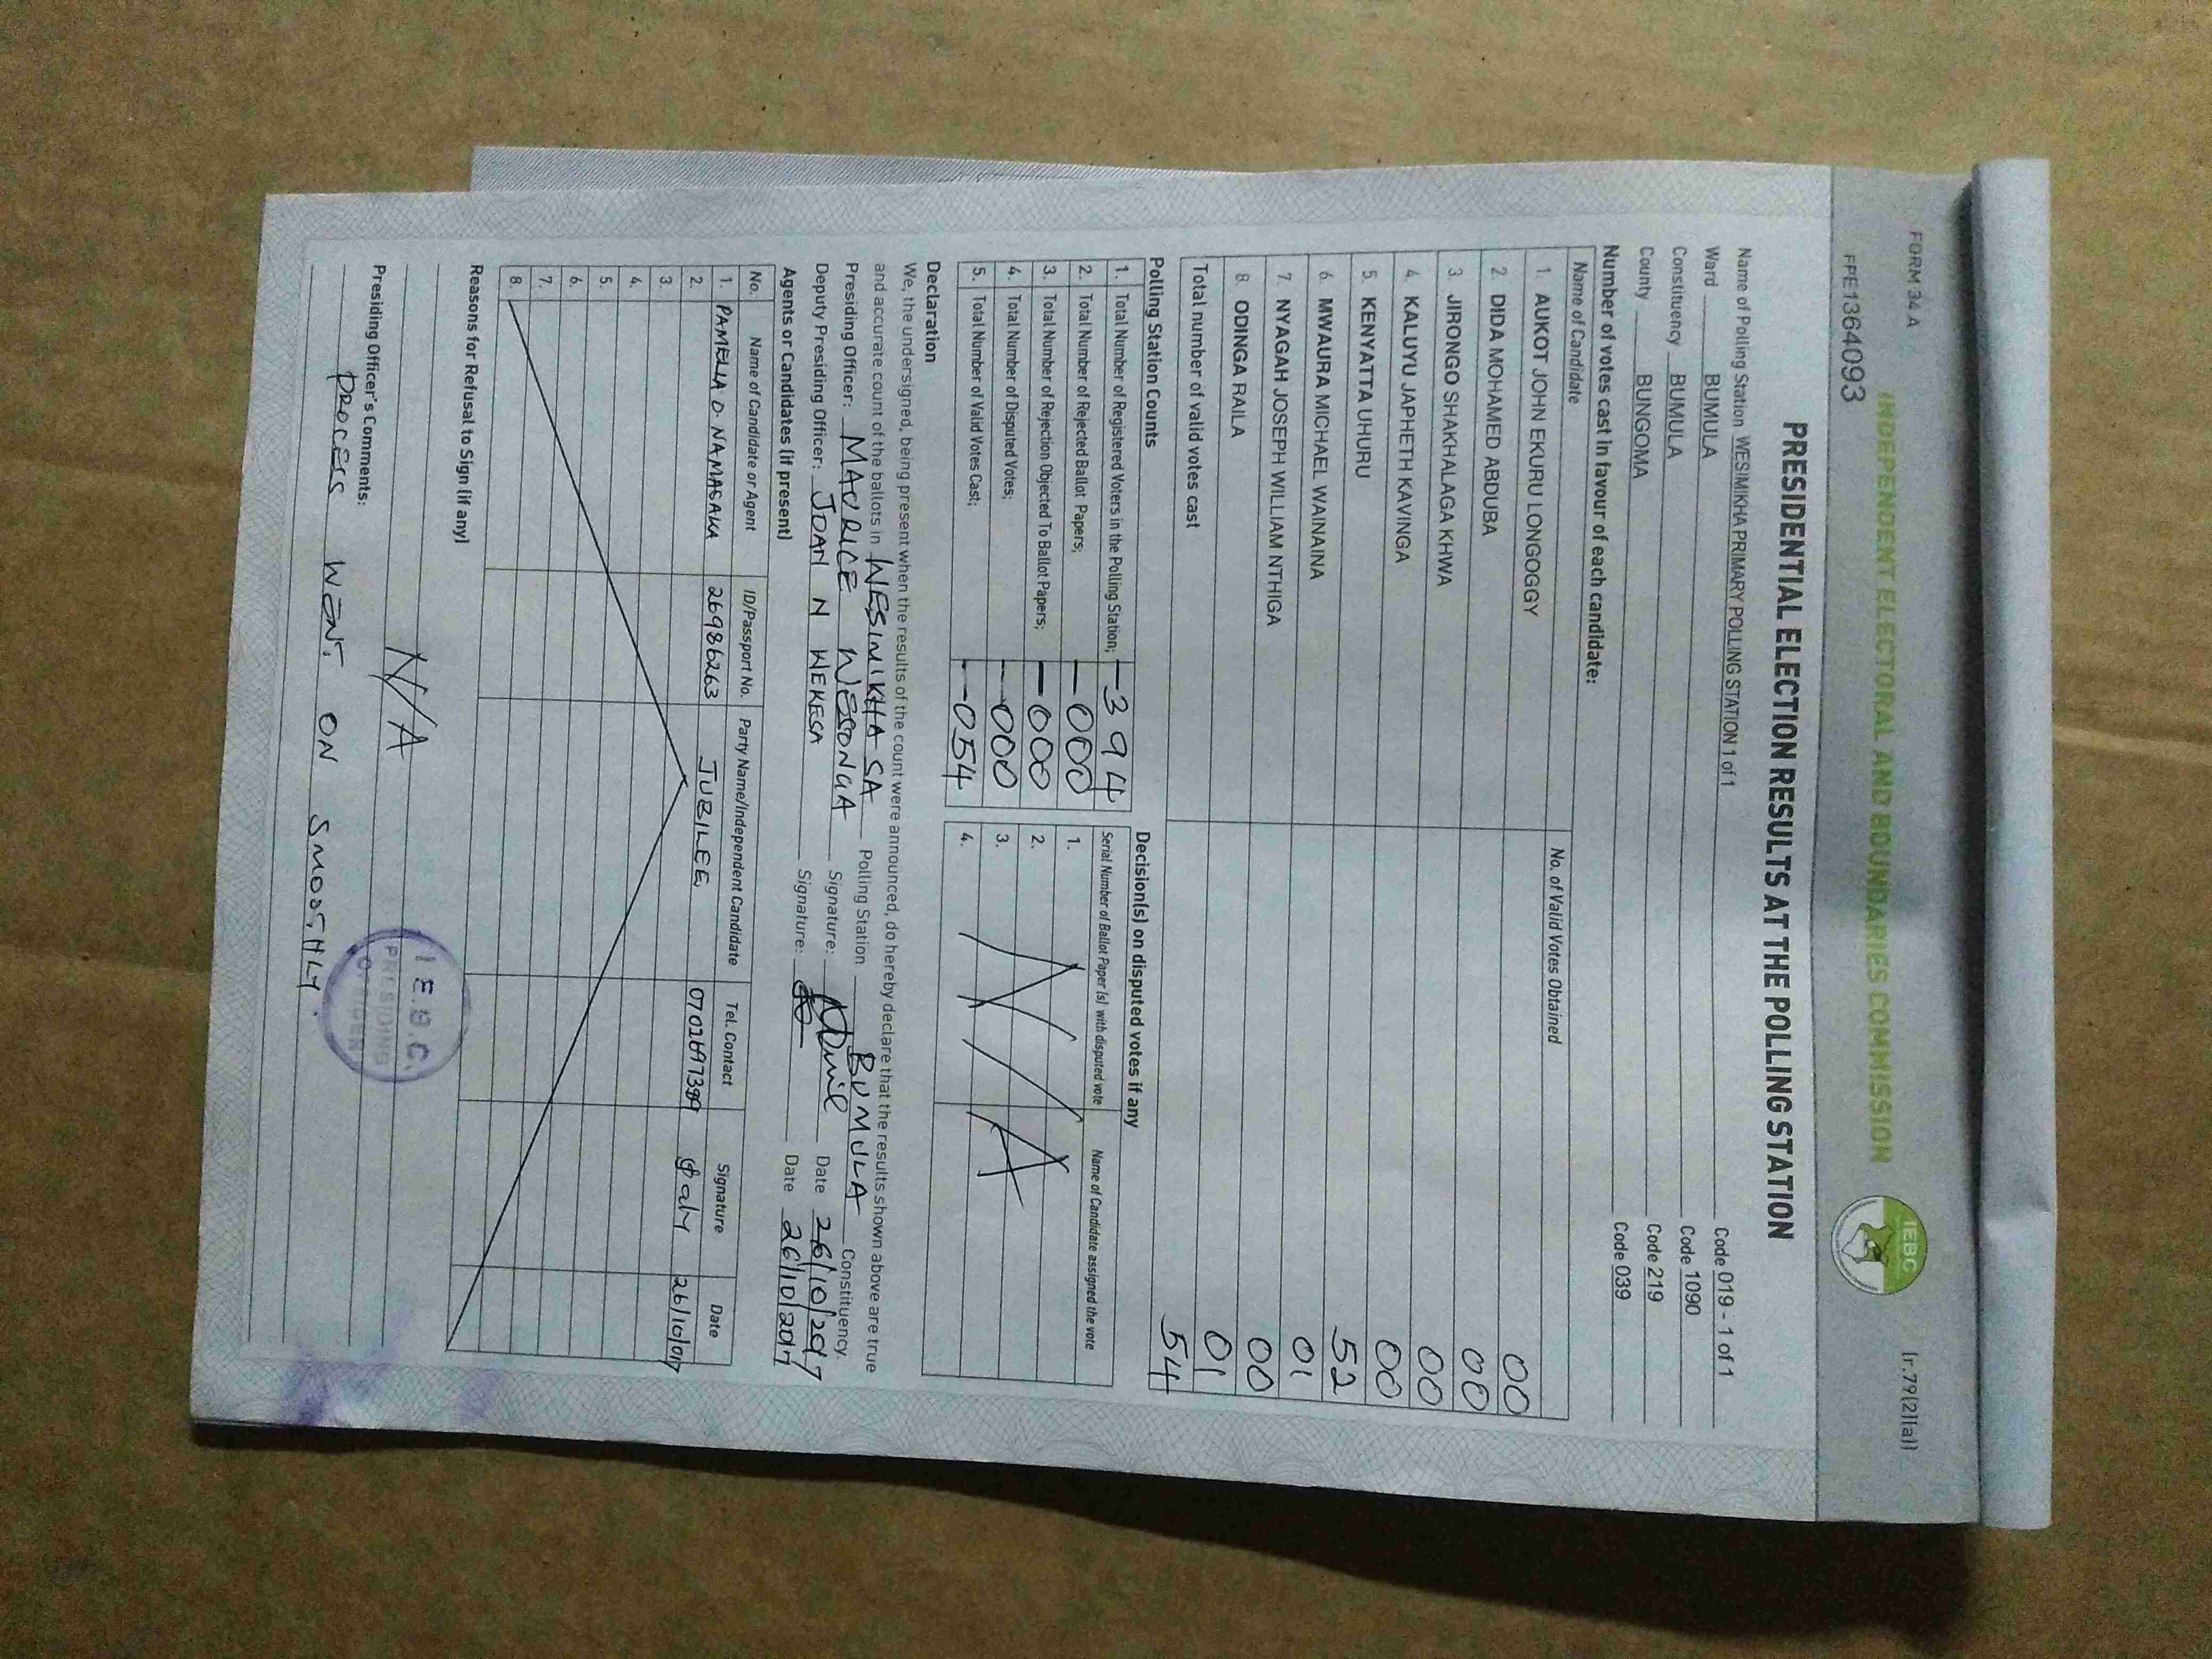 FORM 34 A
[r.79(2)(a)]
INDEPENDENT ELECTORAL AND BOUNDARIES COMMISSION
IEBC
FPE1364093
PRESIDENTIAL ELECTION RESULTS AT THE POLLING STATION
Name of Polling Station WESIMIKHA PRIMARY POLLING STATION 1 of 1 Code 019 - 1 of 1
Ward BUMULA Code 1090
Constituency BUMULA Code 219
County BUNGOMA Code 039
Number of votes cast in favour of each candidate:
Name of Candidate No. of Valid Votes Obtained
1. AUKOT JOHN EKURU LONGOGGY 00
2. DIDA MOHAMED ABDUBA 00
3. JIRONGO SHAKHALAGA KHWA 00
4. KALUYU JAPHETH KAVINGA 00
5. KENYATTA UHURU 52
6. MWAURA MICHAEL WAINAINA 01
7. NYAGAH JOSEPH WILLIAM NTHIGA 00
8. ODINGA RAILA 01
Total number of valid votes cast 54
Polling Station Counts
1. Total Number of Registered Voters in the Polling Station; -394
2. Total Number of Rejected Ballot Papers; -000
3. Total Number of Rejection Objected To Ballot Papers; -000
4. Total Number of Disputed Votes; -000
5. Total Number of Valid Votes Cast; -054
Decision(s) on disputed votes if any
Serial Number of Ballot Paper (s) with disputed vote Name of Candidate assigned the vote
1.
2.
3.
4.
N/A
Declaration
We, the undersigned, being present when the results of the count were announced, do hereby declare that the results shown above are true
and accurate count of the ballots in WESIMIKHA SA Polling Station BUMULA Constituency.
Presiding Officer: MAURICE WESONGA Signature: Date 26/10/2017
Deputy Presiding Officer: JOAN N WEKESA Signature: Date 26/10/2017
Agents or Candidates (if present)
No. Name of Candidate or Agent ID/Passport No. Party Name/Independent Candidate Tel. Contact Signature Date
1. PAMELLA O. NAMASAKA 26986263 JUBILEE 0702697389 26/10/017
2.
3.
4.
5.
6.
7.
8.
Reasons for Refusal to Sign (if any)
N/A
I.E.B.C.
PRESIDING
OFFICER
Presiding Officer's Comments:
PROCESS WENT ON SMOOTHLY.